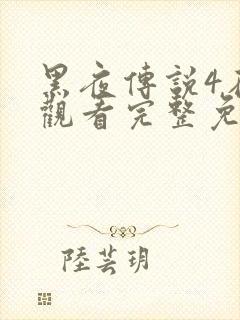 黑夜傳說4
觀看完整免
陸芸玥